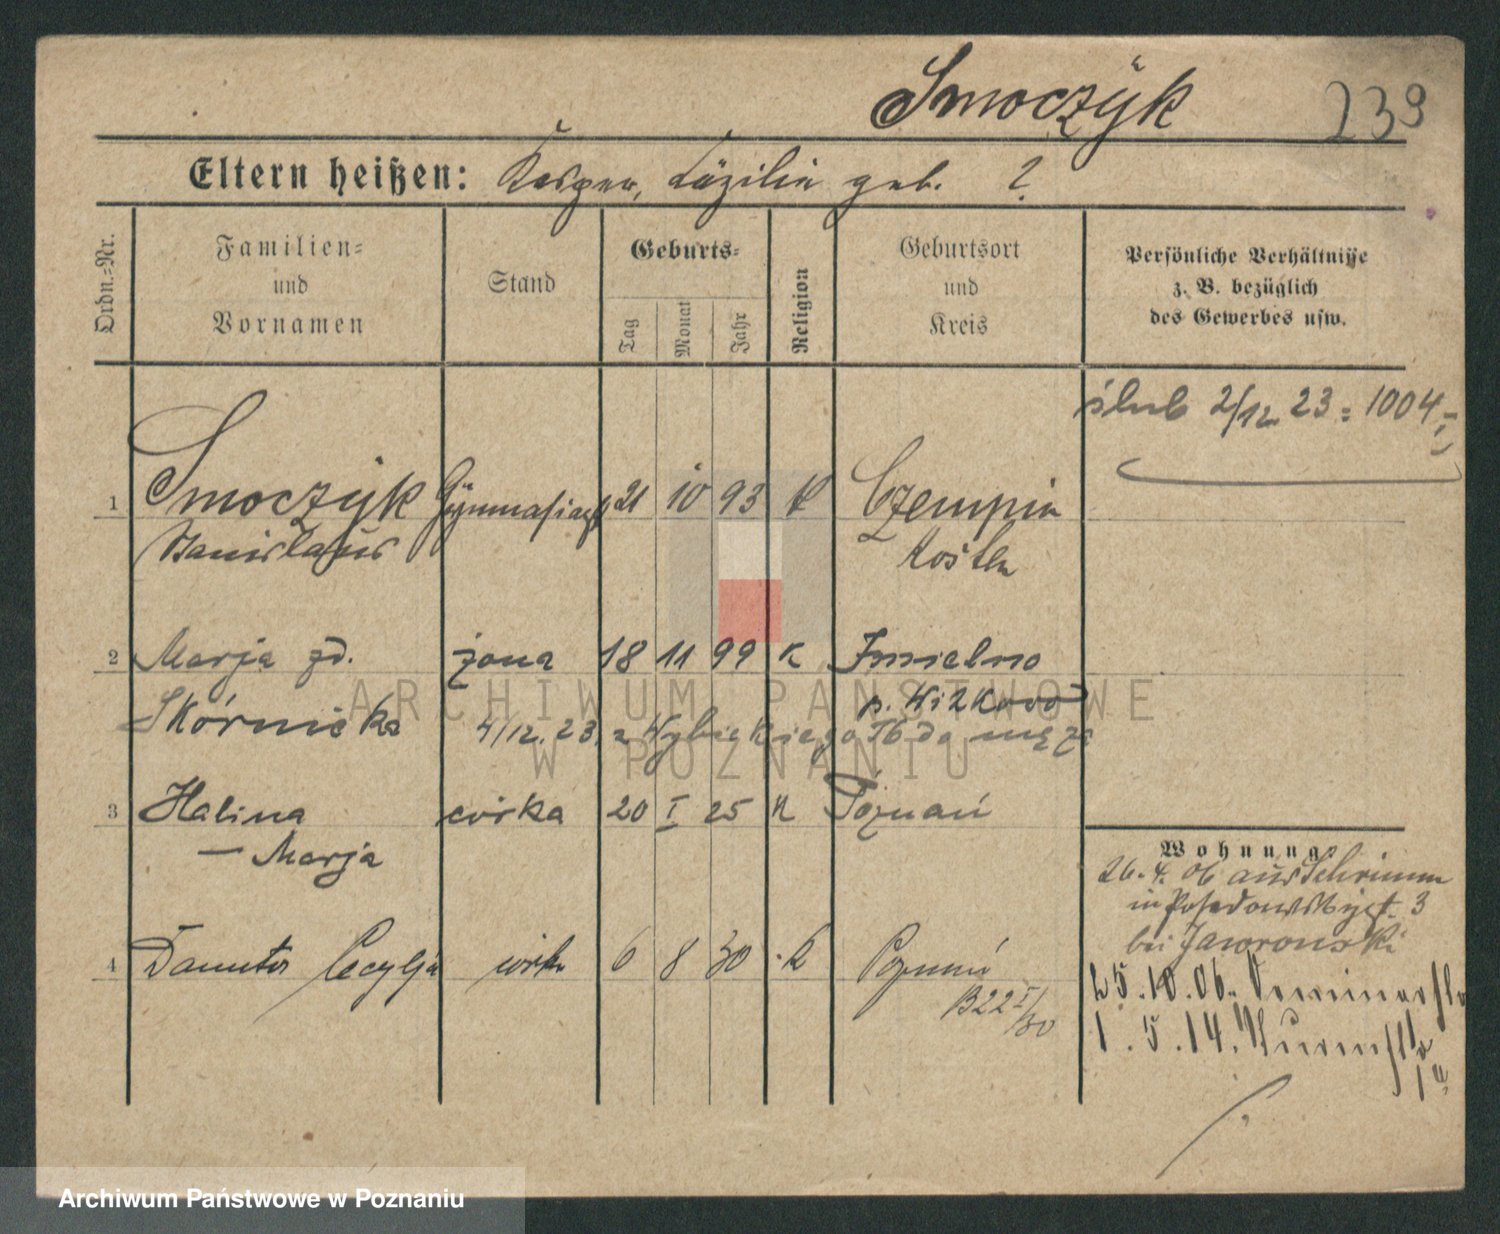 Smoczÿk 239
Eltern heißen: Kasper, Cäzilia geb. ?
Ordn.=Nr.
Familien=
und
Vornamen
Stand
Geburts=
Tag
Monat
Jahr
Religion
Geburtsort
und
Kreis
Persönliche Verhältnisse
z. B. bezüglich
des Gewerbes usw.
ślub 2/12 23 = 1004
1 Smoczÿk Gÿmnasiast 21 10 93 K Czempin
Stanislaus Kosten
2 Marja zd. żona 18 11 99 K Imielno
Skórnicka
4/12.23 z Wybickiego 16 do męża
3 Halina córka 20 I 25 K Poznań
— Marja
4 Danuta Cecylja córka 6 8 30 K Poznań
B22 I/30
Wohnung:
26. 4. 06 aus Schrimm
in 3
bei Jaworowski
25.10.06. Seminarstr
1.5.14.
ARCHIWUM PAŃSTWOWE
W POZNANIU
Archiwum Państwowe w Poznaniu